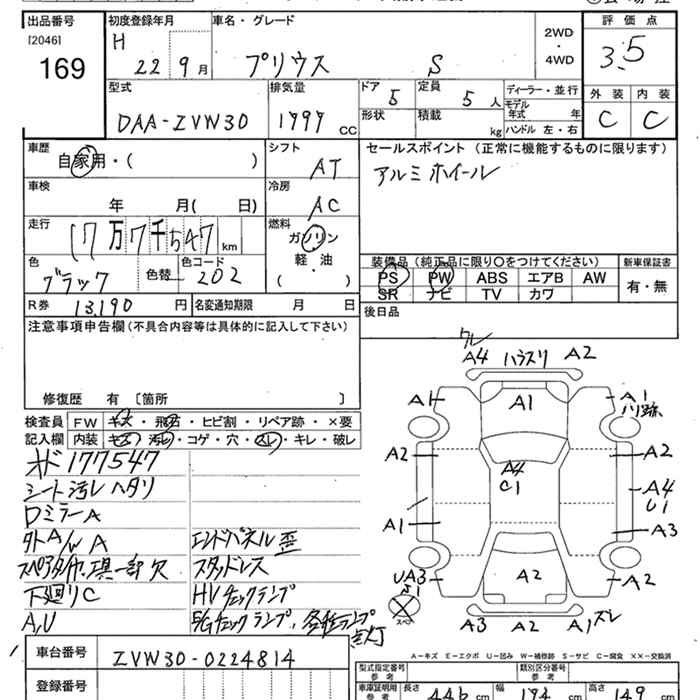 出品番号 初度登録年月 車名・グレード 2WD・4WD 評価点
[2046] 169 H 22 9月 プリウス S 3.5
型式 排気量 ドア 5 定員 5人 ディーラー・並行 外装 内装
DAA-ZVW30 1797 CC 形状 積載 kg モデル年式 年 ハンドル 左・右 C C
車歴 自家用・( ) シフト AT セールスポイント (正常に機能するものに限ります)
車検 年 月( 日) 冷房 AC アルミホイール
走行 17万7千547km 燃料 ガソリン 軽・油 ( )
色 ブラック 色替 色コード 202 装備品 (純正品に限り○をつけてください) 新車保証書
PS PW ABS エアB AW 有・無
SR ナビ TV カワ
R券 13,190円 名変通知期限 月 日 後日品
注意事項申告欄(不具合内容等は具体的に記入して下さい)
修復歴 有 〔箇所 〕
検査員 記入欄 FW キズ・飛石・ヒビ割・リペア跡・×要
内装 キズ・汚レ・コゲ・穴・スレ・キレ・破レ
オド 177547
シート汚レ ヘタリ
Dミラー A
外A/W A エンドパネル 歪
スペアタイヤ、工具一部 欠 スタッドレス
下廻りC HVチェックランプ
A,U E/Gチェックランプ、各種ランプ点灯
車台番号 ZVW30-0224814
登録番号
ワレ
A4 ハラスリ A2
A1 A1 A1 ハリ跡
A2 A2
A4 C1 A4 U1
A1 A3
UA3 S1 A2 A2
スペア
A3 A2 A1 ズレ
A－キズ E－エクボ U－凹み W－補修跡 S－サビ C－腐食 XX－交換済
型式指定番号 参考 類別区分番号 参考
車庫証明用 参考 長さ 446 cm 幅 174 cm 高さ 149 cm